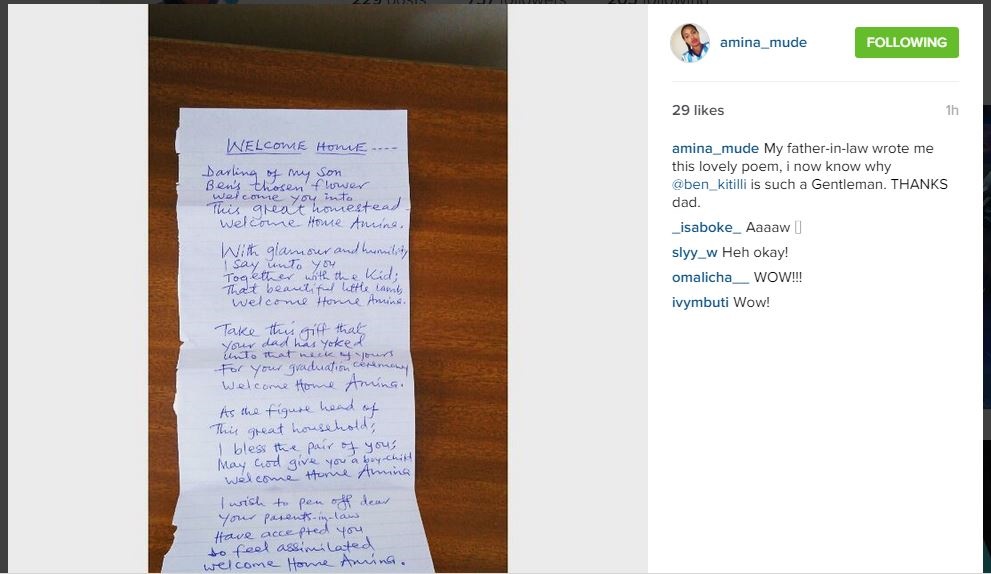 229 posts 737 followers 205 following
WELCOME HOME ----
Darling of my son
Ben's chosen flower
welcome you into
This great homestead
Welcome Home Amina.
With glamour and humility
I say unto you
Together with the Kid;
That beautiful little lamb
Welcome Home Amina.
Take this gift that
your dad has yoked
unto that neck of yours
For your graduation ceremony
Welcome Home Amina.
As the figure head of
This great household;
I bless the pair of you;
May God give you a boy-child
Welcome Home Amina
I wish to pen off dear
Your parents-in-law
Have accepted you
So feel assimilated
Welcome Home Amina.
amina_mude FOLLOWING
29 likes 1h
amina_mude My father-in-law wrote me
this lovely poem, i now know why
@ben_kitilli is such a Gentleman. THANKS
dad.
_isaboke_ Aaaaw
slyy_w Heh okay!
omalicha__ WOW!!!
ivymbuti Wow!